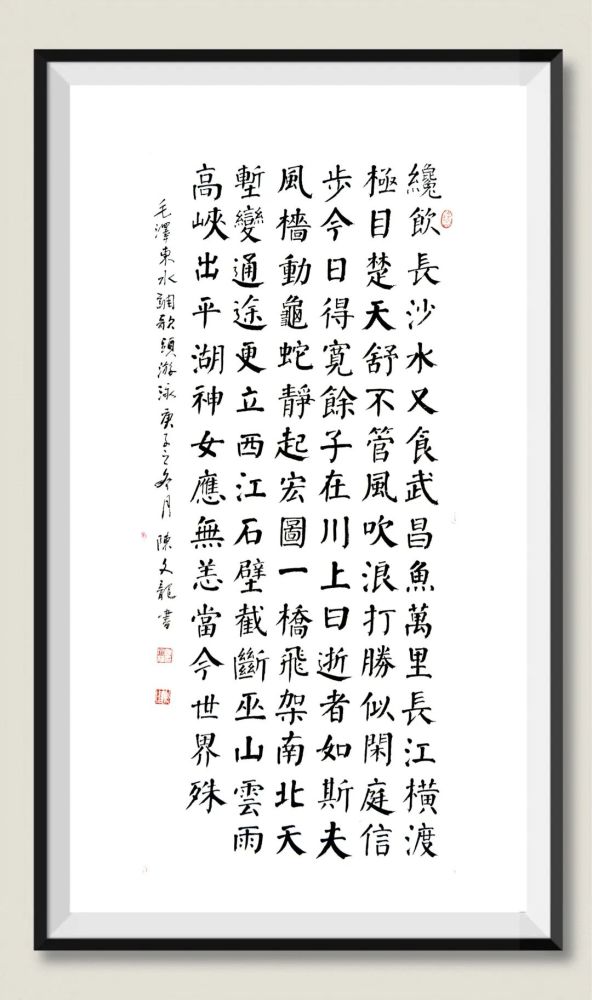 纔飲長沙水又食武昌魚萬里長江橫渡
極目楚天舒不管風吹浪打勝似閑庭信
步今日得寬餘子在川上曰逝者如斯夫
風檣動龜蛇靜起宏圖一橋飛架南北天
塹變通途更立西江石壁截斷巫山雲雨
高峽出平湖神女應無恙當今世界殊
毛澤東水調歌頭游泳庚子之冬月 陳文龍書